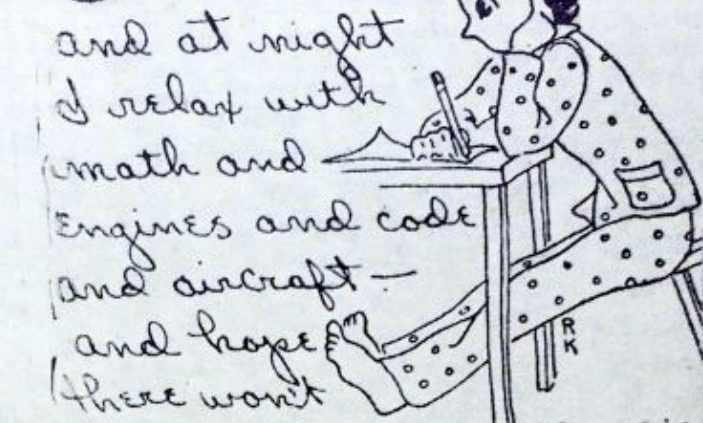 and at night
I relax with
math and
engines and code
and aircraft —
and hope
there won't
R
K